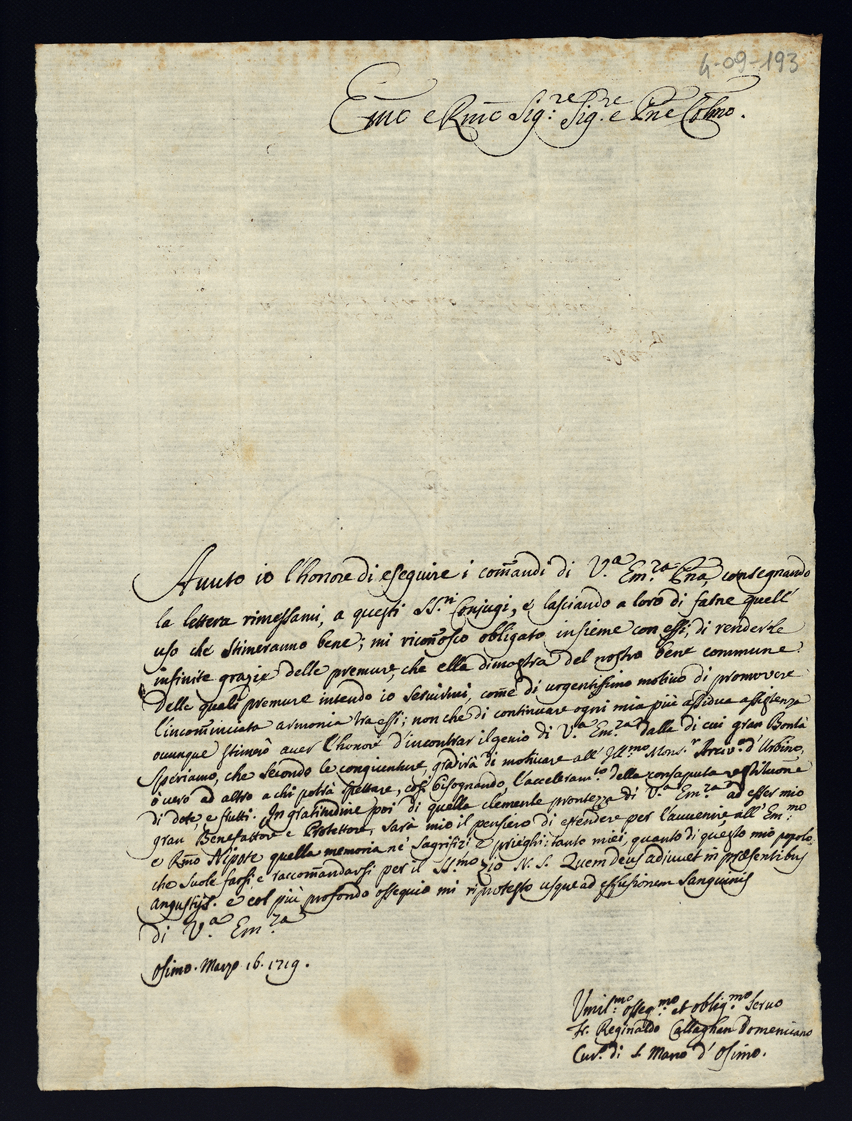 4-09-193
Emo e Rmo Sig:re Sig.re e Pne Colmo.
Avuto io l'honore di eseguire i comandi di V.a Em.za Pna, consegnando
la lettera rimessami, a questi SS.ri Conjugi, e lasciando a loro di farne quell'
uso che stimeranno bene; mi riconosco obligato insieme con essi, di renderle
infinite grazie delle premure, che ella dimostra del nostro bene commune.
delle quali premure intendo io servirmi, come di urgentissimo motivo di promovere
l'incominciata armonia tra essi; non che di continuare ogni mia più assidua assistenza
ovunque stimerò aver l'honore d'incontrar il genio di V.a Em.za dalla di cui gran Bontà
speriamo, che secondo le congiunture, gradirà di motivare all' Ill.mo Mons.r Arciv.o d'Urbino,
o vero ad altro a chi potrà spettare, così bisognando, l'acceleram.to della consaputa restituzione
di dote, e frutti. In gratitudine poi di quella clemente prontezza di V.a Em.za ad esser mio
gran Benefattore e Protettore, sarà mio il pensiero di estendere per l'avvenire all' Em:mo
e Rmo Nipote quella memoria ne' sagrifizi e prieghi: tanto miei, quanto di questo mio popolo,
che suole farsi e raccomandarsi per il SS.mo Zio N. S. Quem deus adjuvet in præsentibus
angustijs. e col più profondo ossequio mi riprotesto usque ad effusionem Sanguinis
di V.a Em.za
Osimo. Marzo 16. 1719.
Vmil:mo osseq.mo et oblig.mo servo
Fr. Reginaldo Callaghan Domenicano
Cur.o di S. Marco d'Osimo.